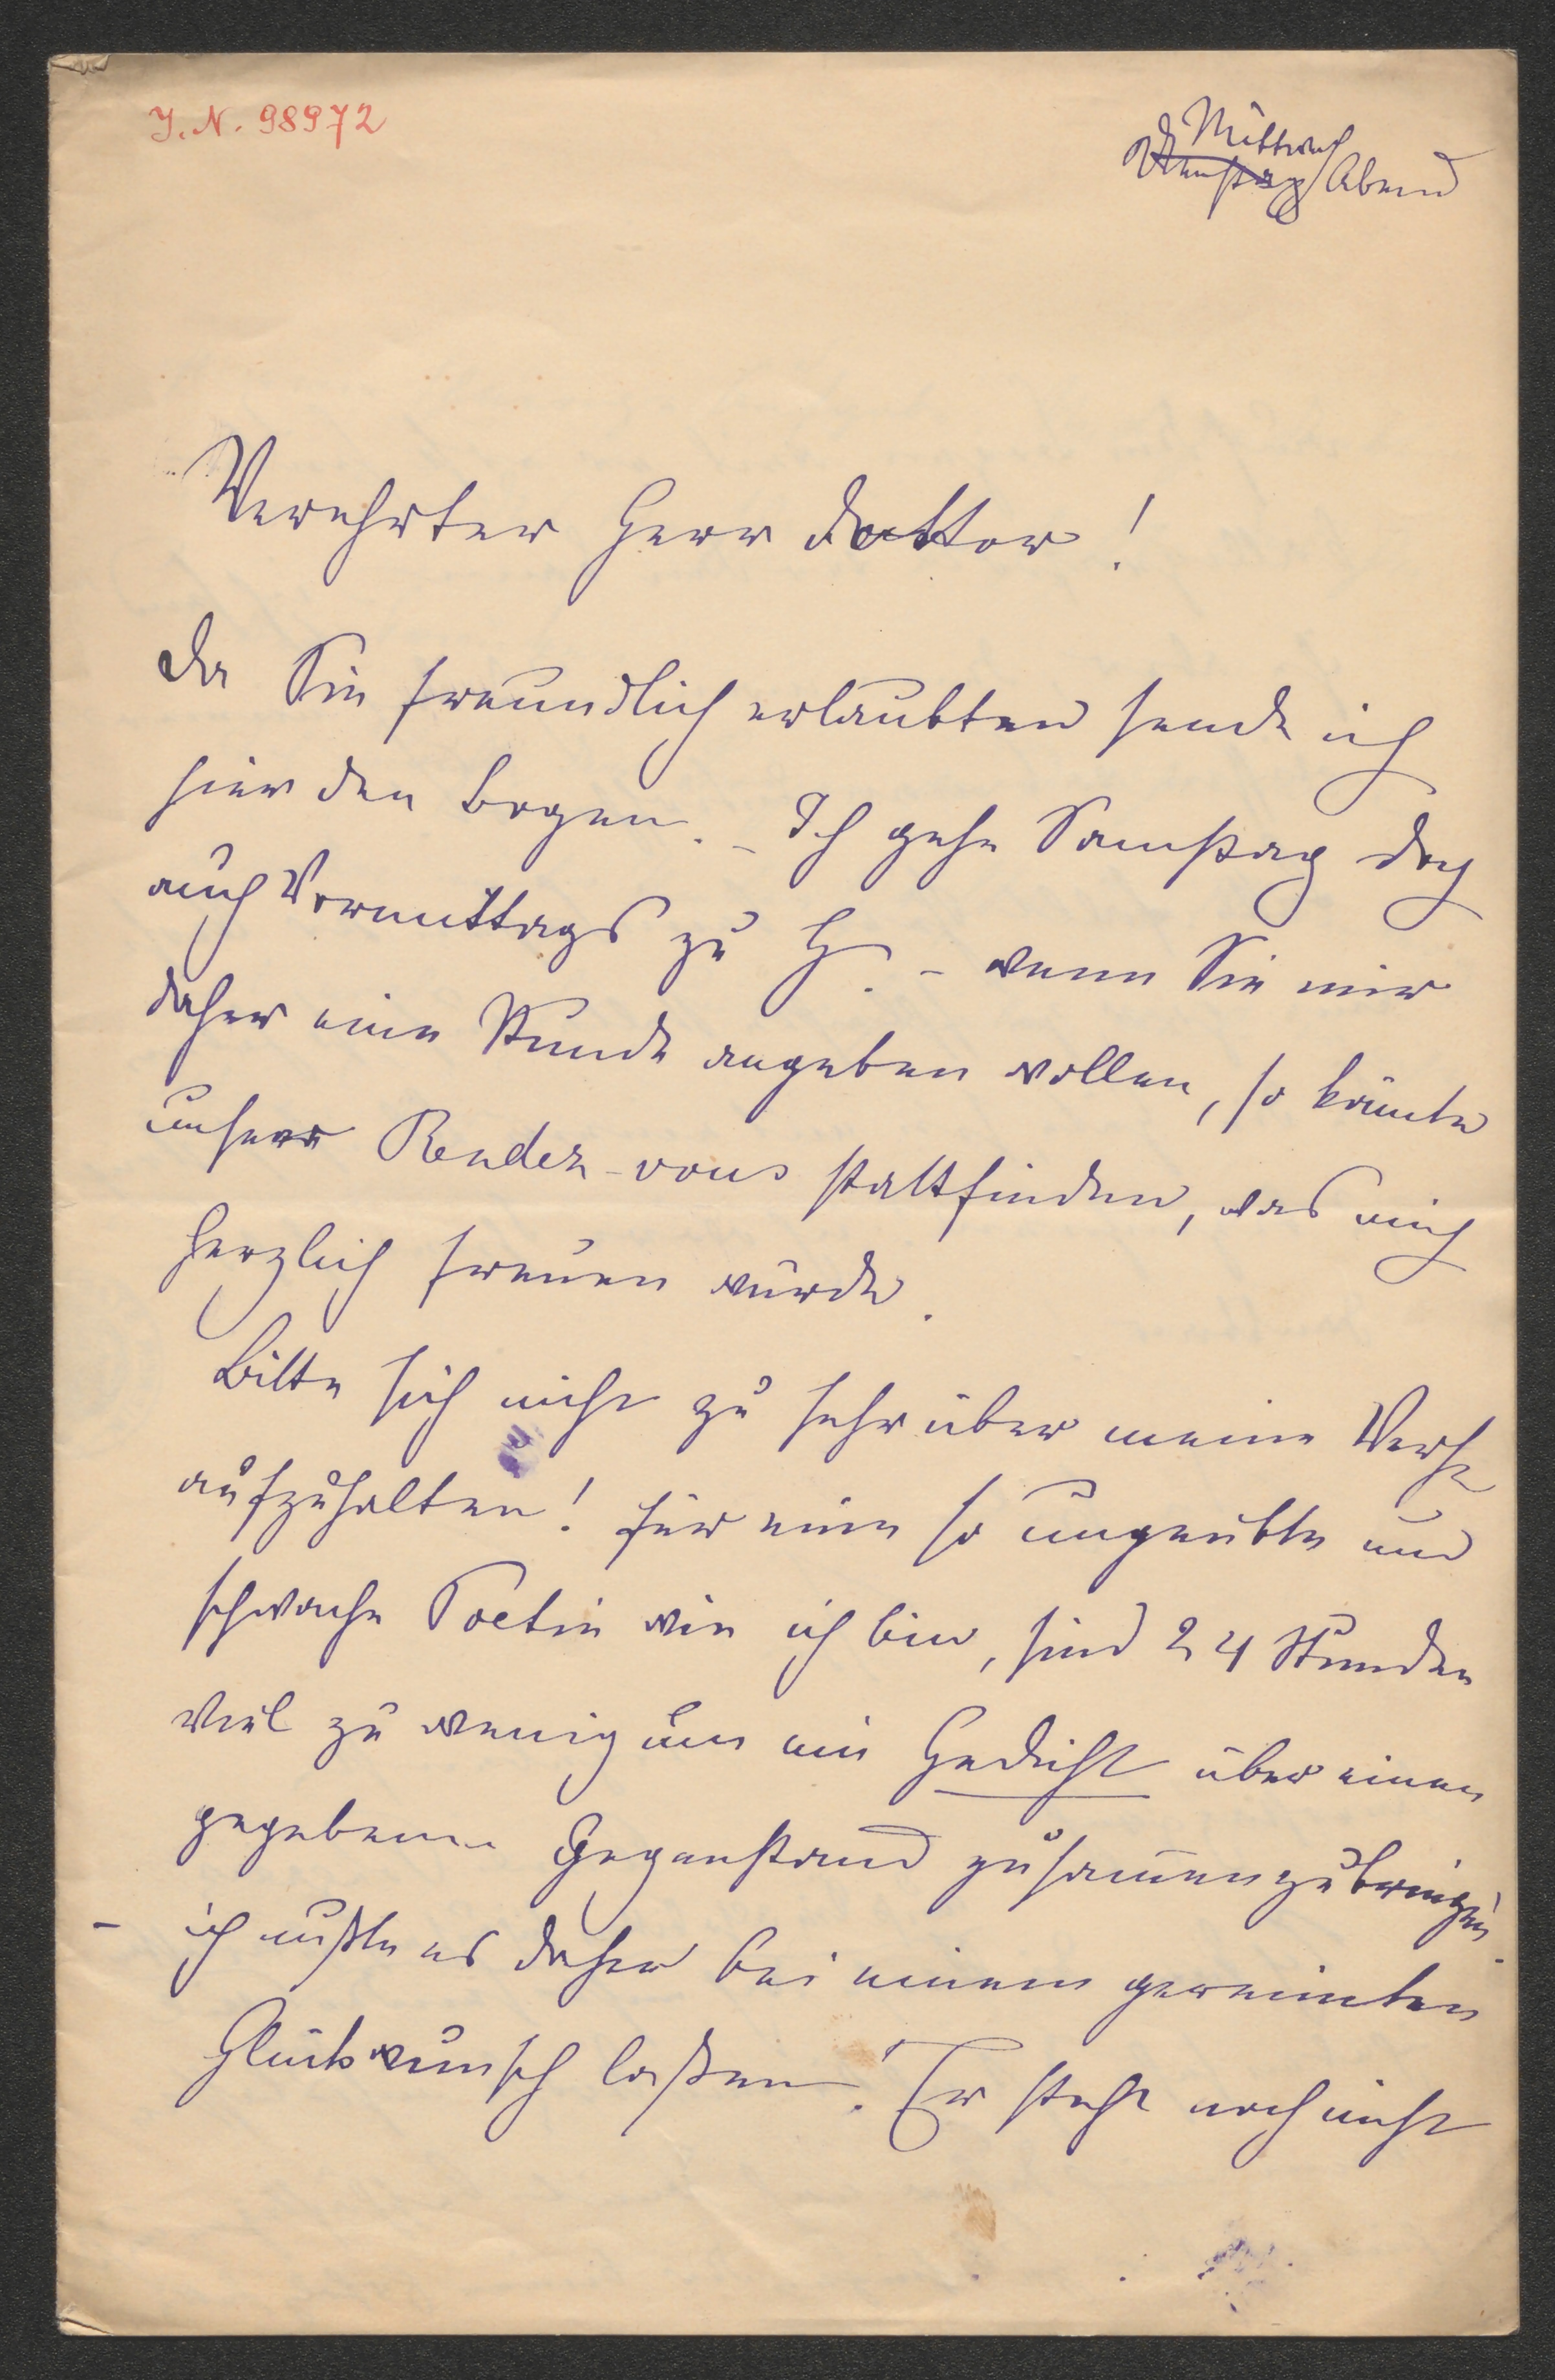 J. N. 98972
Mittwoch
Dienstag Abend
Verehrter Herr Doktor!
Da Sie freundlich erlaubten sende ich
hier den Bogen. – Ich gehe Samstag doch
auch Vormittags zu H. – wenn Sie mir
daher eine Stunde angeben wollen, so könnte
unser Rendez-vous stattfinden, was mich
herzlich freuen würde.
Bitte sich nicht zu sehr über meine Verse
aufzuhalten! für eine so ungeübte und
schwache Poetin wie ich bin, sind 24 Stunden
viel zu wenig um ein Gedicht über einen
gegebenen Gegenstand zusammenzubringen
– ich mußte es daher bei einem gereimten
Glückwunsch laßen. Er steht noch nicht